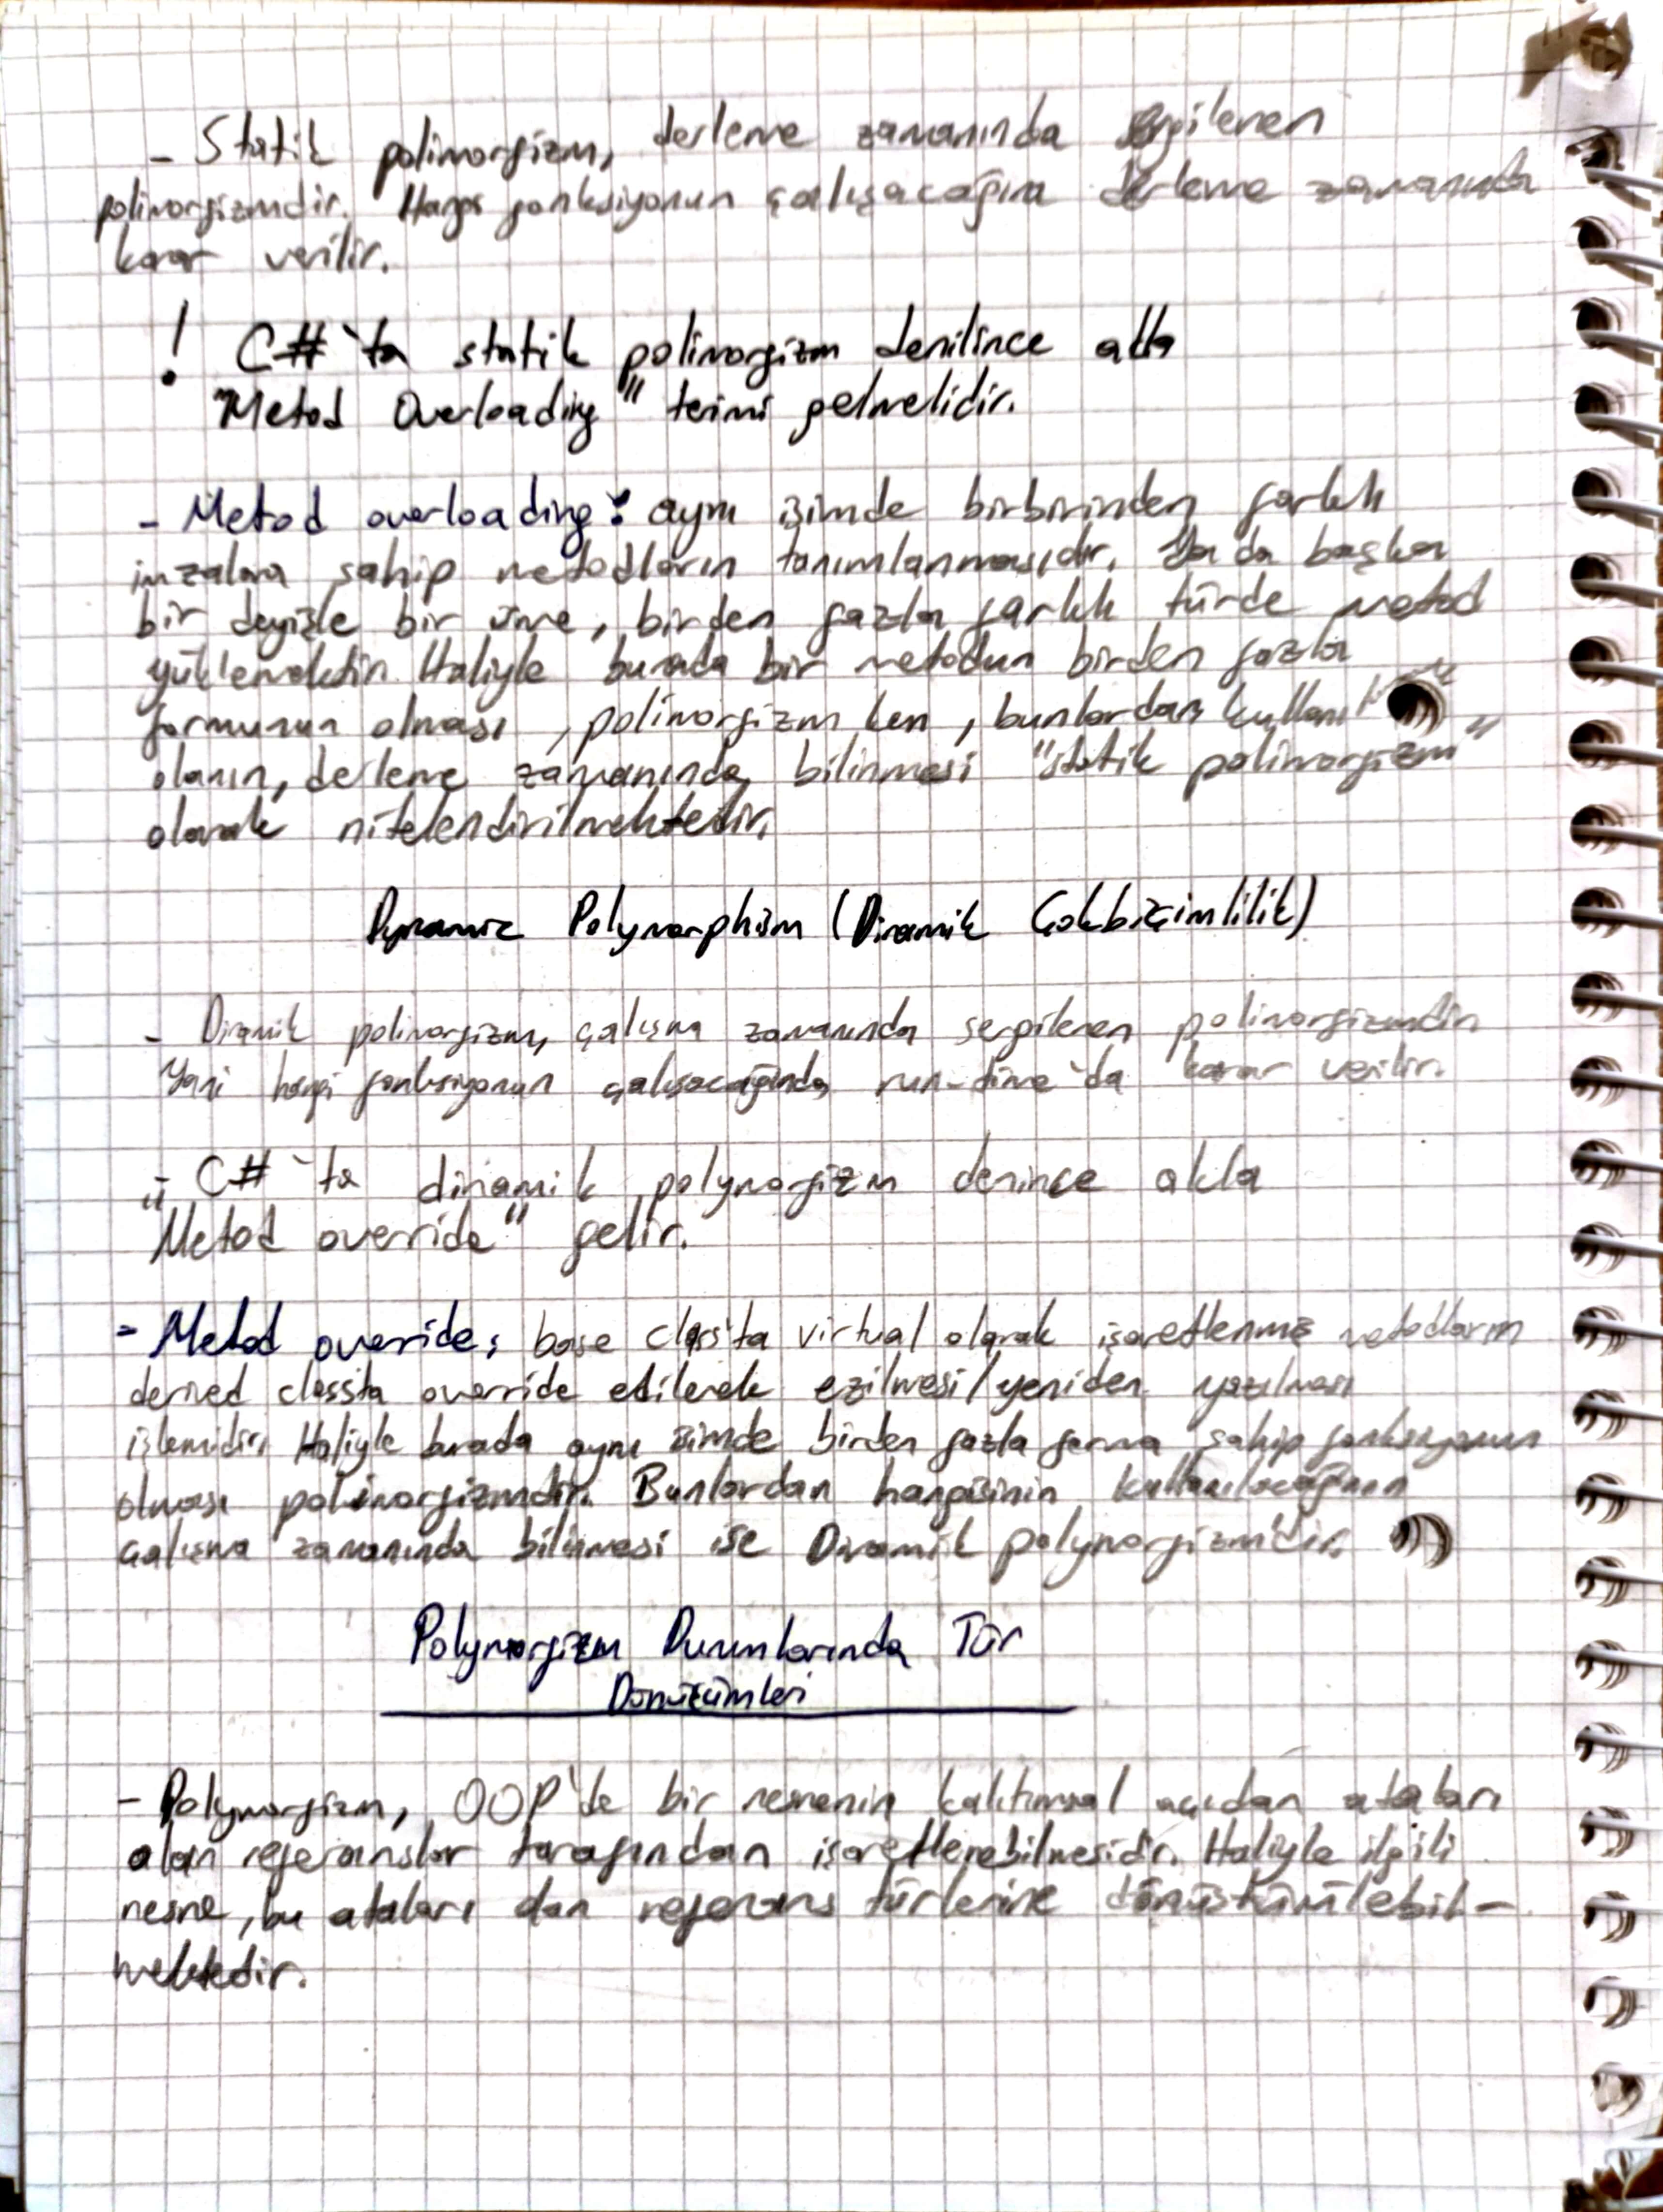 - Statik polimorfizm, derleme zamanında sergilenen
polimorfizmdir. Hangi fonksiyonun çalışacağına derleme zamanında
karar verilir.
! C#'ta statik polimorfizm denilince akla
"Metod Overloading" terimi gelmelidir.
- Metod overloading: aynı isimde birbirinden farklı
imzalara sahip metodların tanımlanmasıdır. Ya da başka
bir deyişle bir isme, birden fazla farklı türde metod
yüklemektir. Haliyle burada bir metodun birden fazla
formunun olması, polimorfizm ken, bunlardan
olanın, derleme zamanında bilinmesi "statik polimorfizm"
olarak nitelendirilmektedir.
Dynamic Polymorphism (Dinamik Çokbiçimlilik)
- Dinamik polimorfizm, çalışma zamanında sergilenen polimorfizmdir
Yani hangi fonksiyonun çalışacağında run-time'da karar verilir.
- C#'ta dinamik polymorfizm denince akla
"Metod override" gelir.
- Metod override: base class'ta virtual olarak işaretlenmiş metodların
derived classta override edilerek ezilmesi/yeniden yazılması
işlemidir. Haliyle burada aynı isimde birden fazla forma sahip fonksiyonun
olması polimorfizmdir. Bunlardan hangisinin kullanılacağının
çalışma zamanında bilinmesi ise Dinamik polymorfizm'dir.
Polymorfizm Durumlarında Tür
Dönüşümleri
- Polymorfizm, OOP'de bir nesnenin kalıtımsal açıdan ataları
olan referanslar tarafından işaretlenebilmesidir. Haliyle ilgili
nesne, bu ataları olan referans türlerine dönüştürülebil-
mektedir.